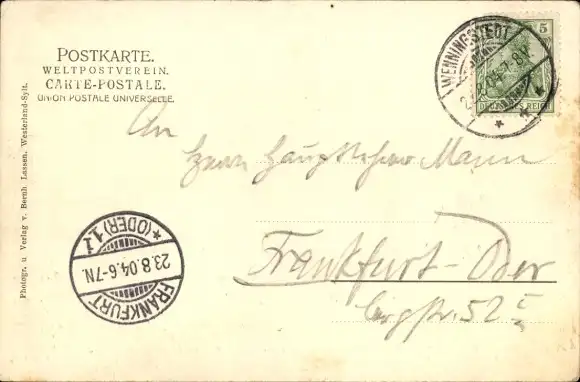 POSTKARTE.
WELTPOSTVEREIN.
CARTE-POSTALE.
UNION POSTALE UNIVERSELLE.
WENNINGSTEDT
04.7-8V.
5
DEUTSCHES REICH
An
Herrn Hauptlehrer Mann
Frankfurt-Oder
Bergstr. 52 I
FRANKFURT
23.8.04.6-7N.
*(ODER) 11
Photogr. u Verlag v. Bernh Lassen, Westerland-Sylt.